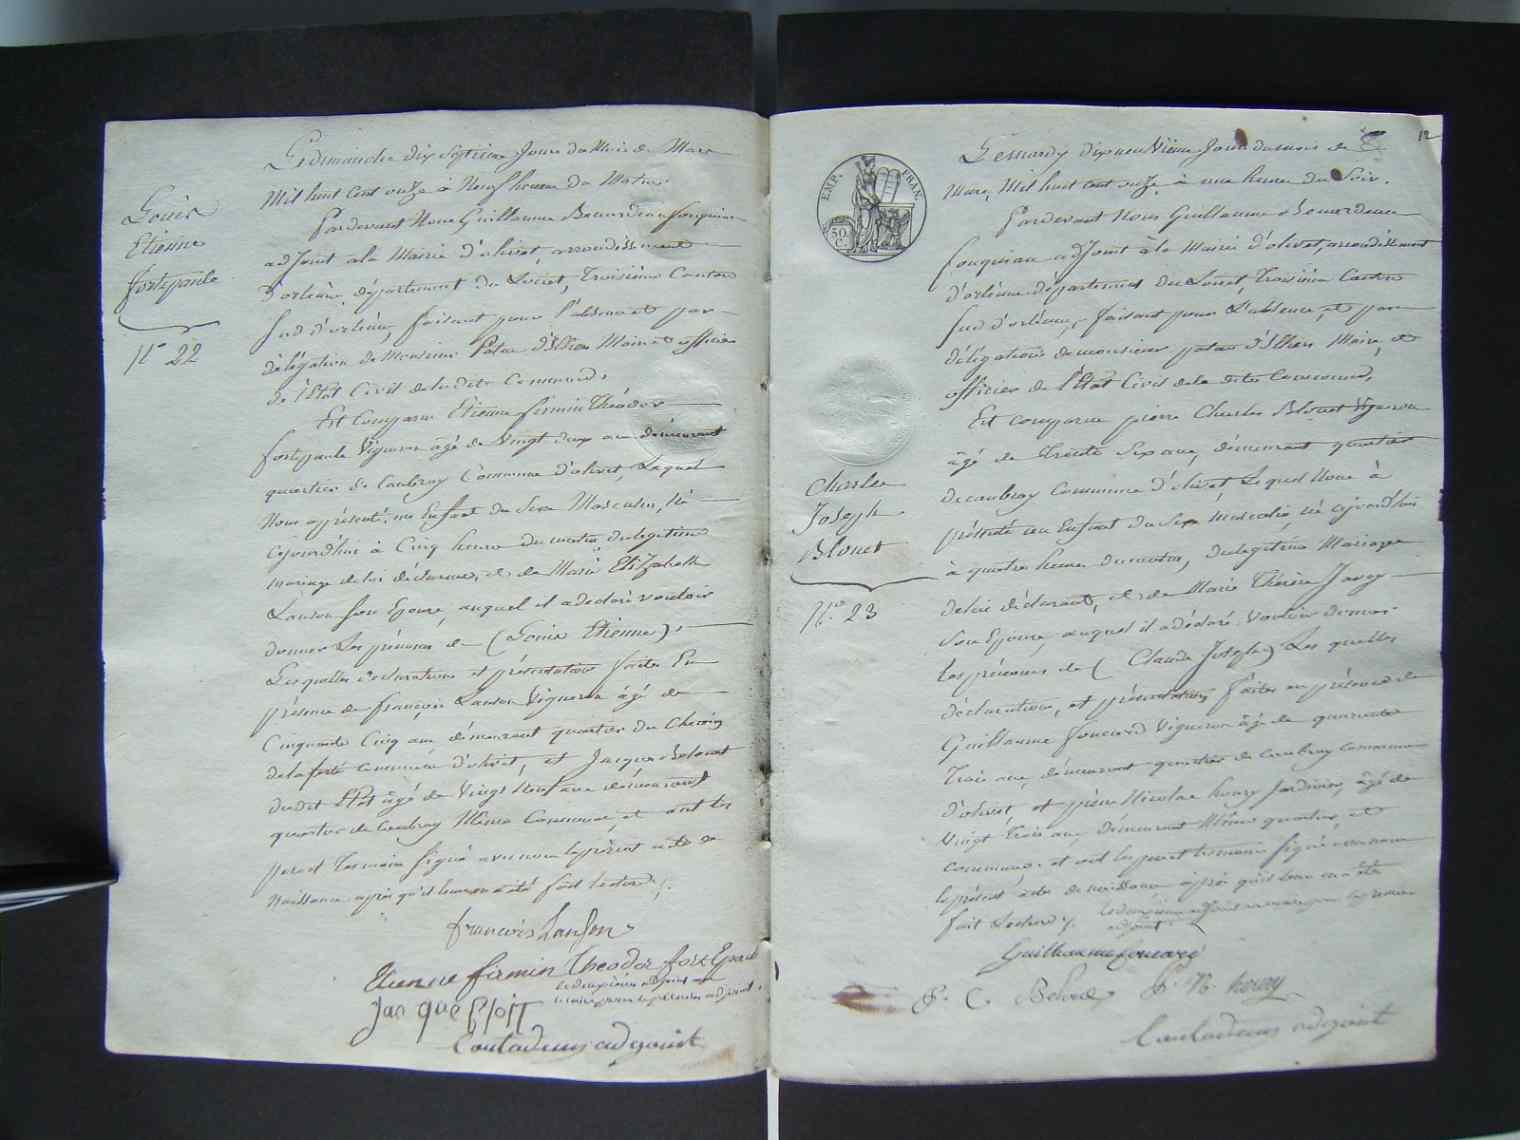 Louis
Etienne
fortepaule
N° 22
Le dimanche dix Septieme Jour du Mois de Mars
Mil huit Cent onze à Neuf heures du Matin
Pardevant Nous Guillaume fouquiau
adJoint à la Mairie d'olivet, arrondissement
d'orléans, département du Loiret, Troisième Canton
Sud d'orléans, faisant pour l'absence et par
délégation de Monsieur Maire et officier
de l'Etat Civil de la dite Commune.
Est Comparu Etienne firmin Théodor
fortepaule Vigneron âgé de Vingt deux ans demeurant
quartier de Caubray Commune d'olivet, Lequel
Nous a présenté un Enfant du Sexe Masculin, Né
aujourd'hui à Cinq heures du matin du légitime
mariage de lui déclarant, et de Marie Elizabeth
Lanson Son Epouse, auquel il a déclaré vouloir
donner Les prénoms de (Louis Etienne).
Lesquelles déclarations et présentations faites En
présence de françois Lanson Vigneron âgé de
Cinquante Cinq ans, démeurant quartier du Chemin
de la ferté commune d'olivet, et Jacques
dudit Etat âgé de Vingt Neuf ans demeurant
quartier de Caubray Même Commune, et ont les
père et Témoins Signé avec nous le présent acte de
Naissance après qu'il leur en a été fait lecture ./.
francois Lanson
Etienne firmin Theodor fortEpaule
le deuxième adjoint au
maire pour le premier adjoint.
Jacque
adjoint
12
EMP. FRAN.
50 C.
Charles
Joseph
Blouet
N° 23
Le mardy dix neuvième Jour du mois de
Mars, Mil huit cent onze à une heure du Soir.
Pardevant Nous Guillaume
fouquiau adJoint à la Mairie d'olivet, arrondissement
d'orléans département du Loiret, Troisième Canton
Sud d'orléans, faisant pour L'absence, et par
délégation de monsieur Maire, et
officier de l'Etat Civil de la dite Commune,
Est comparu pierre Charles Blouet Vigneron
âgé de Trente Six ans, démeurant quartier
de caubray Commune d'olivet Lequel Nous à
présenté un Enfant du Sexe masculin, né aujourd'hui
à quatre heures du matin, du légitime Mariage
de lui déclarant, et de Marie Thérèse
Son Epouse, auquel il a déclaré Vouloir donner
les prénoms de (Claude Joseph) Les quelles
déclarations, et présentations faites en présence de
Guillaume foucard Vigneron âgé de quarante
Trois ans, démeurant quartier de Caubray Commune
d'olivet, et pierre Nicolas houry Jardinier, âgé de
Vingt Trois ans, démeurant Même quartier, et
commune, et ont les père et temoins Signé avec nous
le présent acte de naissance après qu'il leur en a été
fait Lecture ./. le deuxième adjoint au maire pour le premier
adjoint
Guillaume foucard
P. C. P. N. houry
adjoint